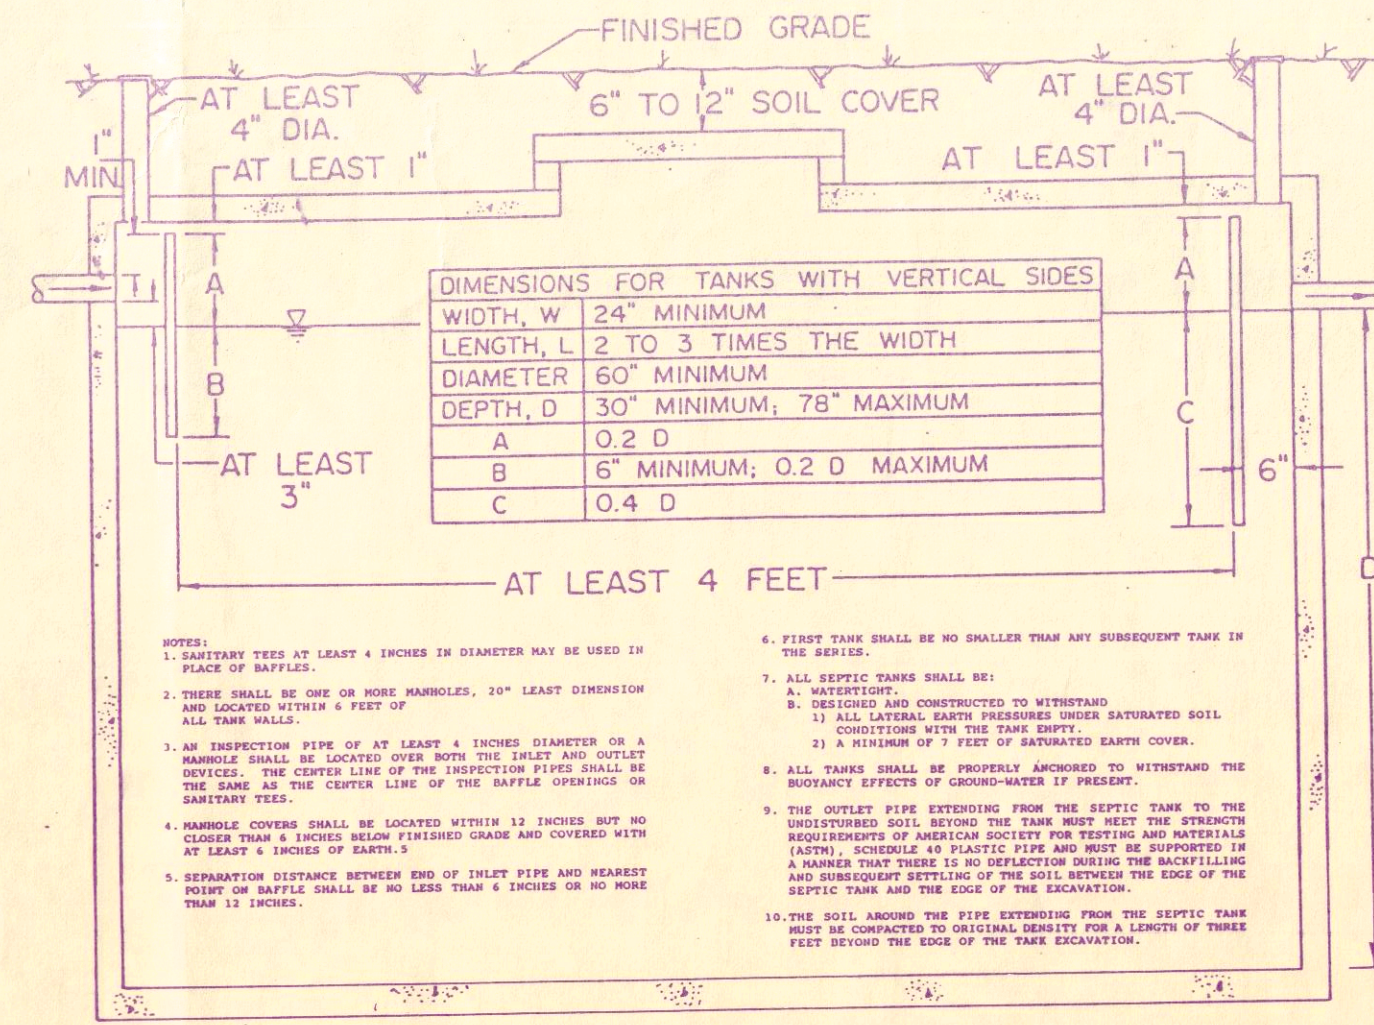 FINISHED GRADE
AT LEAST
4" DIA.
6" TO 12" SOIL COVER
AT LEAST
4" DIA.
1"
MIN.
AT LEAST 1"
AT LEAST 1"
A
A
B
C
DIMENSIONS FOR TANKS WITH VERTICAL SIDES
WIDTH, W 24" MINIMUM
LENGTH, L 2 TO 3 TIMES THE WIDTH
DIAMETER 60" MINIMUM
DEPTH, D 30" MINIMUM; 78" MAXIMUM
A 0.2 D
B 6" MINIMUM; 0.2 D MAXIMUM
C 0.4 D
AT LEAST
3"
6"
AT LEAST 4 FEET
D
NOTES:
1. SANITARY TEES AT LEAST 4 INCHES IN DIAMETER MAY BE USED IN
PLACE OF BAFFLES.
2. THERE SHALL BE ONE OR MORE MANHOLES, 20" LEAST DIMENSION
AND LOCATED WITHIN 6 FEET OF
ALL TANK WALLS.
3. AN INSPECTION PIPE OF AT LEAST 4 INCHES DIAMETER OR A
MANHOLE SHALL BE LOCATED OVER BOTH THE INLET AND OUTLET
DEVICES. THE CENTER LINE OF THE INSPECTION PIPES SHALL BE
THE SAME AS THE CENTER LINE OF THE BAFFLE OPENINGS OR
SANITARY TEES.
4. MANHOLE COVERS SHALL BE LOCATED WITHIN 12 INCHES BUT NO
CLOSER THAN 6 INCHES BELOW FINISHED GRADE AND COVERED WITH
AT LEAST 6 INCHES OF EARTH.5
5. SEPARATION DISTANCE BETWEEN END OF INLET PIPE AND NEAREST
POINT ON BAFFLE SHALL BE NO LESS THAN 6 INCHES OR NO MORE
THAN 12 INCHES.
6. FIRST TANK SHALL BE NO SMALLER THAN ANY SUBSEQUENT TANK IN
THE SERIES.
7. ALL SEPTIC TANKS SHALL BE:
A. WATERTIGHT.
B. DESIGNED AND CONSTRUCTED TO WITHSTAND
1) ALL LATERAL EARTH PRESSURES UNDER SATURATED SOIL
CONDITIONS WITH THE TANK EMPTY.
2) A MINIMUM OF 7 FEET OF SATURATED EARTH COVER.
8. ALL TANKS SHALL BE PROPERLY ANCHORED TO WITHSTAND THE
BUOYANCY EFFECTS OF GROUND-WATER IF PRESENT.
9. THE OUTLET PIPE EXTENDING FROM THE SEPTIC TANK TO THE
UNDISTURBED SOIL BEYOND THE TANK MUST MEET THE STRENGTH
REQUIREMENTS OF AMERICAN SOCIETY FOR TESTING AND MATERIALS
(ASTM), SCHEDULE 40 PLASTIC PIPE AND MUST BE SUPPORTED IN
A MANNER THAT THERE IS NO DEFLECTION DURING THE BACKFILLING
AND SUBSEQUENT SETTLING OF THE SOIL BETWEEN THE EDGE OF THE
SEPTIC TANK AND THE EDGE OF THE EXCAVATION.
10. THE SOIL AROUND THE PIPE EXTENDING FROM THE SEPTIC TANK
MUST BE COMPACTED TO ORIGINAL DENSITY FOR A LENGTH OF THREE
FEET BEYOND THE EDGE OF THE TANK EXCAVATION.